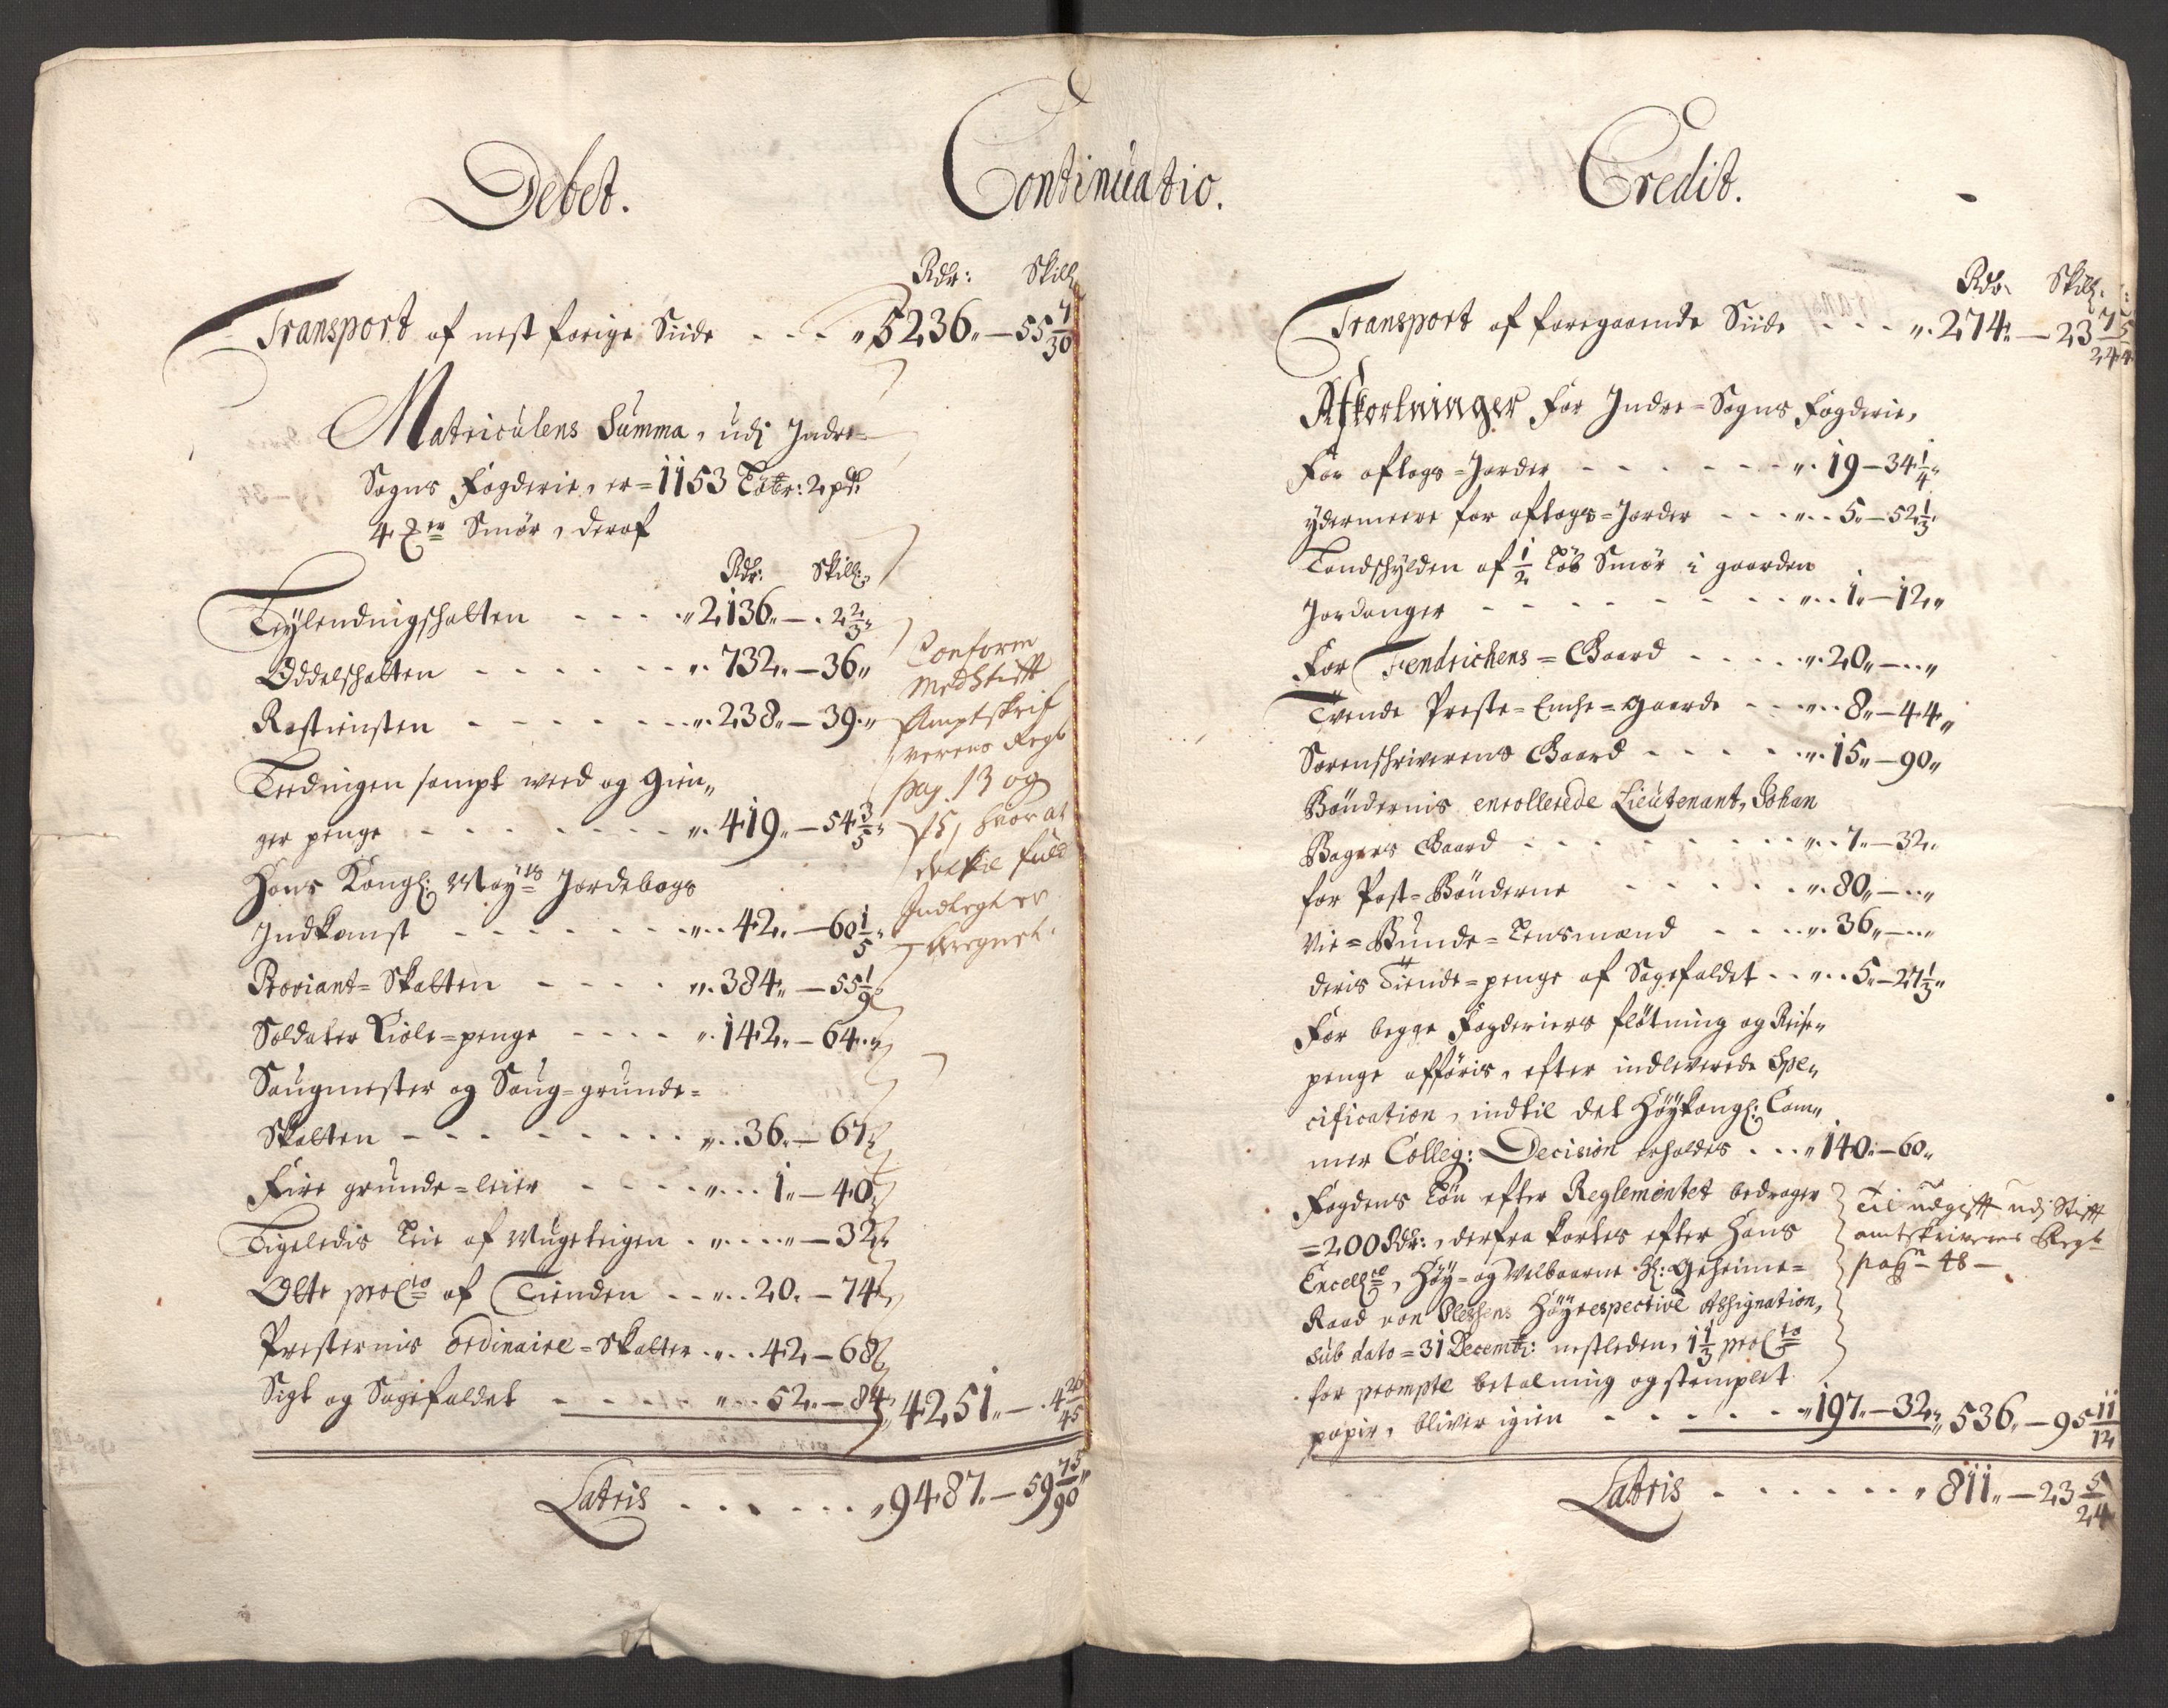 Continuatio.
Debet.
Rdr: Skill
Transport af nest forige Siide - - - „ 5236„ — 55 7/30
Matriculens Summa, udj Indre=
Sogns Fogderie, er = 1153 Løbr: 2 pd:
4 mr Smør, deraf
Rdr: Skill:
Leylendingschatten - - - - „ 2136„ — „ 2 2/3„
Oddelschatten - - - - - - „ 732„ — 36„
Rostiensten - - - - - - „ 238„ — 39„
Leedingen sampt weed og gien„
ger penge - - - - - - - „ 419„ — 54 3/5„
Hans Kongl: Mayts Jordebogs
Indkomst - - - - - - - „ 42„ — 60 1/5„
Proviant=Skatten - - - - „ 384„ — 55 1/9„
Soldater Kiole=penge - - - - „ 142„ — 64„
Saugmester og Saug=grunde=
Skatten - - - - - - - - „ 36„ — 67„
Fire grunde=leier - - - - „ 1„ — 40„
Tigeledis Leie af - - „ — 32„
Otte proCto af Tienden - - „ 20„ — 74„
Presternis ordinaire=Skatter - „ 42„ — 68„
Sigt og Sagefaldet - - - - „ 52„ — 84„ 4251„ — „ 4 26/45
Latris - - - - - - „ 9487„ — 59 75/90„
Conform
med Stifft
Amptskrif
verens Regb
pag. 13 og
15, hvor at
det til fuld
Indtegt er
beregnet.
Credit.
Rdr Skill:
Transport af foregaaende Siide - - - „ 274„ — 23 7/24
Afkortninger for Indre=Sogns Fogderie,
For aflags=Jorder - - - - - - - „ 19 — 34 1/4„
ydermeere for aflags=Jorder - - - „ 5„ — 52 1/3„
Landschylden af 1/2 Løb Smør i gaarden
Jordanger - - - - - - - - - „ 1„ — 12„
For Fendrichens=Gaard - - - - „ 20„ — „
Tvende Preste=Enche=gaarde - - „ 8„ — 44„
Sorenschriverens Gaard - - - - - „ 15„ — 90„
Bøndernis enrollerede Lieutenant, Johan
Bagers Gaard - - - - - - - - „ 7„ — 32„
for Post=Bønderne - - - - - - „ 80„ — „
Nie=Bunde=Lensmænd - - - - „ 36„ — „
deris Tiende=penge af Sagefaldet - - „ 5„ — 27 1/3„
For begge Fogderiers fløtning og Reise„
penge afføris, efter indleverede Spe„
cification, indtil det Høykongl: Cam„
mer Colleg: Decision erholdes - - „ 140„ — 60„
Fogdens Løn efter Reglementet bedrager
= 200 Rdr:, derfra kortes efter Hans
Excellce, Høy= og Velbaarne Hr: Geheime=
Raad von Plessens Høyrespective Assignation,
sub dato = 31 Decembr: nestleden, 1 1/3 proCto
for prompte betalning og stemplet
papir, bliver igien - - - - - „ 197„ — 32„ „ 536„ — 95 11/12
Latris - - - - - - „ 811„ — 23 5/24
Til udgifft udj Stifft
amtskriverens Regb
pagn 48 —